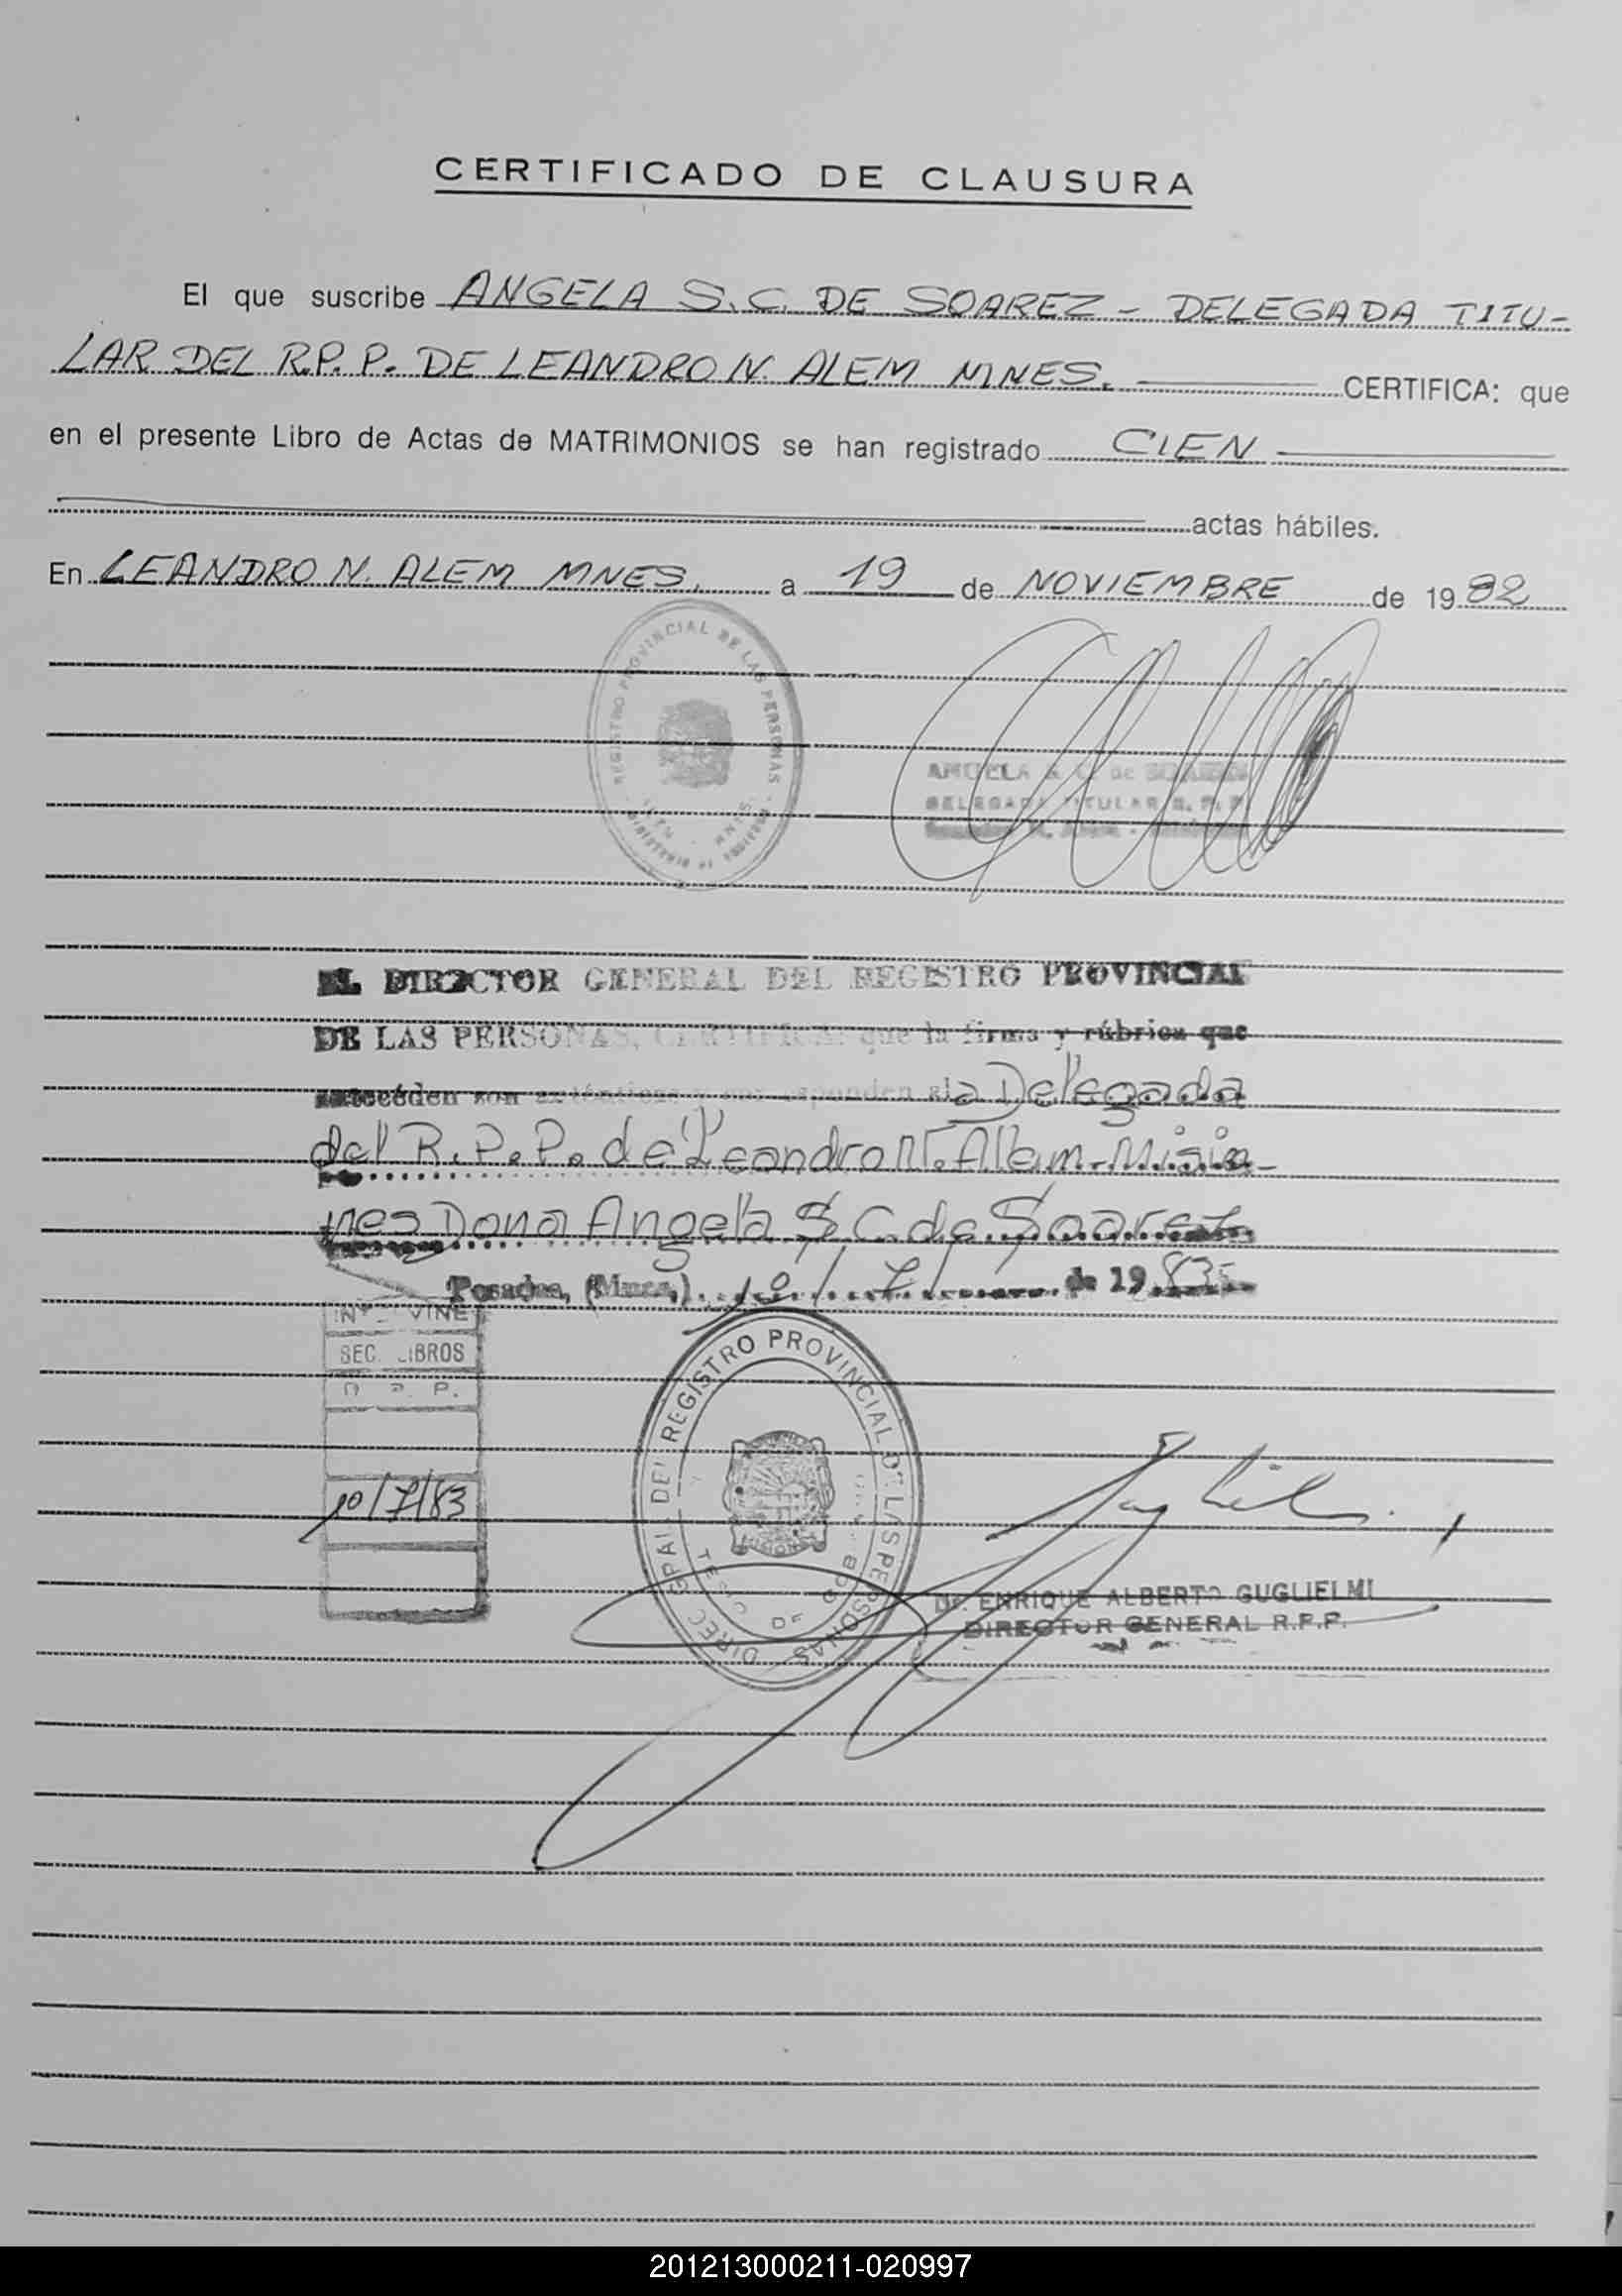 CERTIFICADO DE CLAUSURA
El que suscribe ANGELA S.C. DE SOAREZ - DELEGADA TITU-
LAR DEL R.P.P. DE LEANDRO N. ALEM MNES. CERTIFICA: que
en el presente Libro de Actas de MATRIMONIOS se han registrado CIEN
actas hábiles.
En LEANDRO N. ALEM MNES. a 19 de NOVIEMBRE de 1982
REGISTRO PROVINCIAL DE LAS PERSONAS
ANGELA S. C. de SOAREZ
DELEGADA TITULAR R. P. P.
EL DIRECTOR GENERAL DEL REGISTRO PROVINCIAL
DE LAS PERSONAS, CERTIFICA: que la firma y rúbrica que
anteceden son auténticas y corresponden a la Delegada
del R.P.P. de Leandro N. Alem - Misio-
nes Dona Angela S.C. de Soarez
Posadas, (Mnes.) 10/7/ de 1983
SEC. LIBROS
10/7/83
DIREC. GRAL. DEL REGISTRO PROVINCIAL DE LAS PERSONAS
Dr. ENRIQUE ALBERTO GUGLIELMI
DIRECTOR GENERAL R.P.P.
201213000211-020997